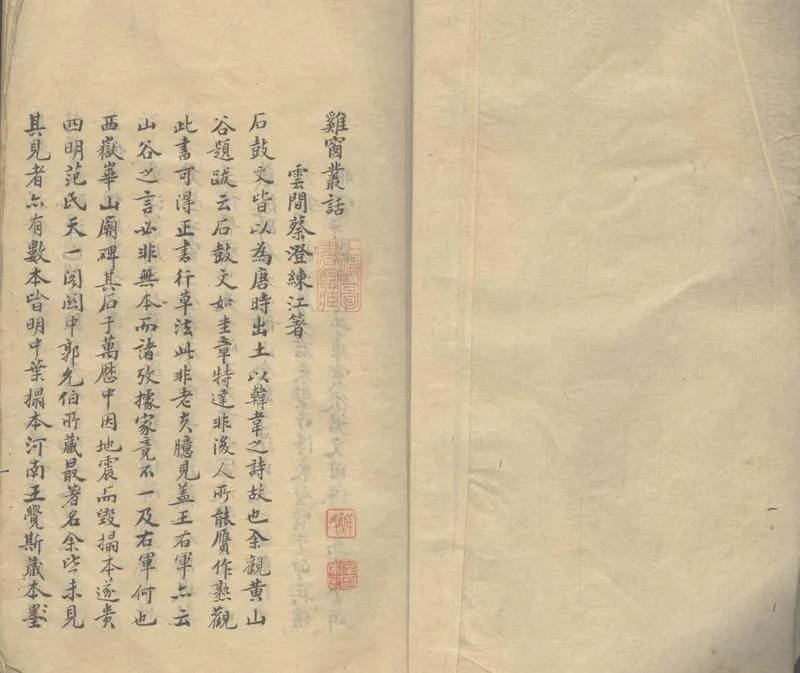 雞窗叢話
雲間蔡澄練江著
石鼓文皆以為唐時出土以韓韋之詩故也余觀黃山
谷題跋云石鼓文如圭章特達非後人所能贋作熟觀
此書可得正書行草法此非老夫臆見蓋王右軍亦云
山谷之言必非無本而諸攷據家竟不一及右軍何也
西嶽崋山廟碑其石于萬歷中因地震而毀搨本遂貴
四明范氏天一閣關中郭允伯所藏最著名余皆未見
其見者亦有數本皆明中葉搨本河南王覺斯藏本墨
上海圖
書館藏